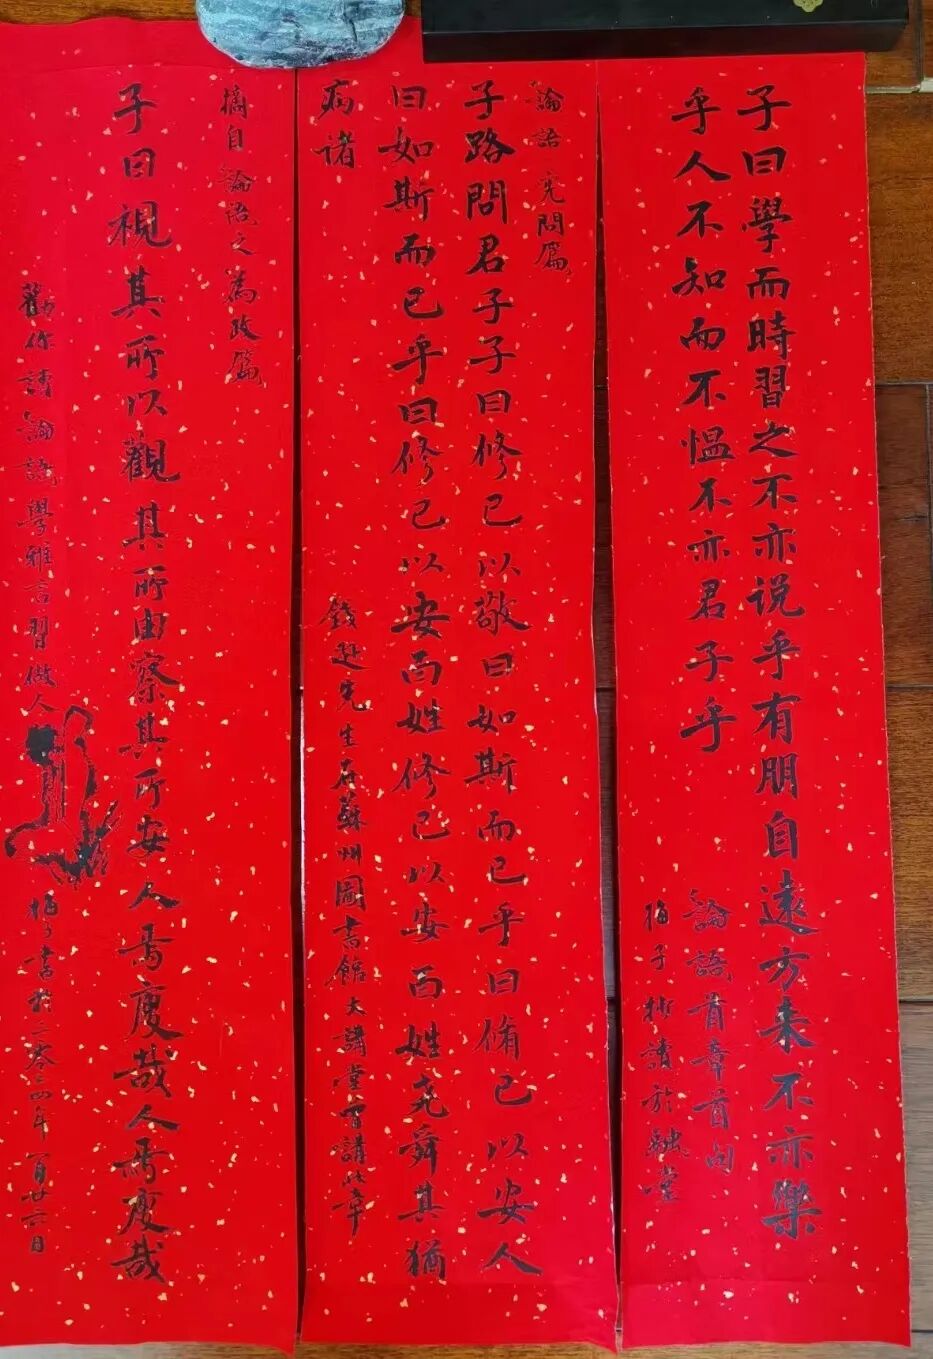 子曰學而時習之不亦说乎有朋自遠方来不亦樂
乎人不知而不愠不亦君子乎
論語首章首句
梅子抄讀於融堂
論語 宪問篇
子路問君子子曰修己以敬曰如斯而已乎曰脩己以安人
曰如斯而已乎曰修己以安百姓修己以安百姓尧舜其猶
病诸
錢逊先生在蘇州圖書館大講堂曾講此章
摘自論語之為政篇
子曰視其所以觀其所由察其所安人焉廋哉人焉廋哉
勸你讀論語學雅言習做人
梅子書於二零二四年一月廿六日